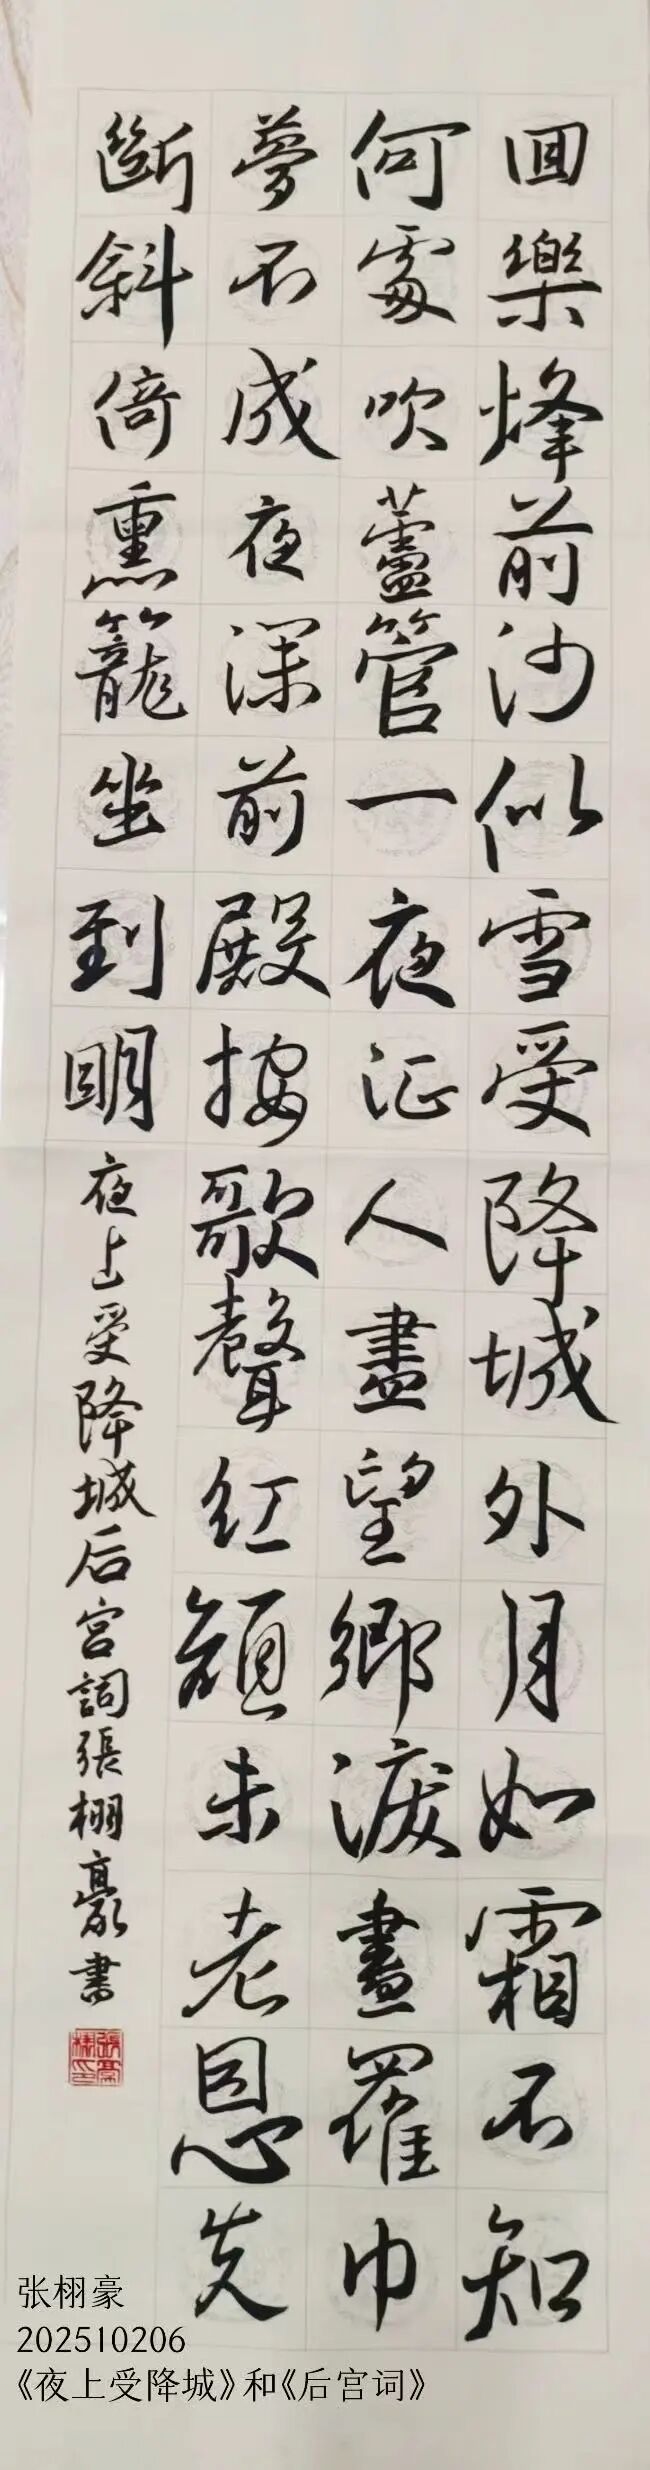 回樂烽前沙似雪受降城外月如霜不知
何處吹蘆管一夜征人盡望鄉淚盡羅巾
夢不成夜深前殿按歌聲紅顏未老恩先
斷斜倚熏籠坐到明
夜上受降城后宮詞張栩豪書
张栩豪
202510206
《夜上受降城》和《后宫词》